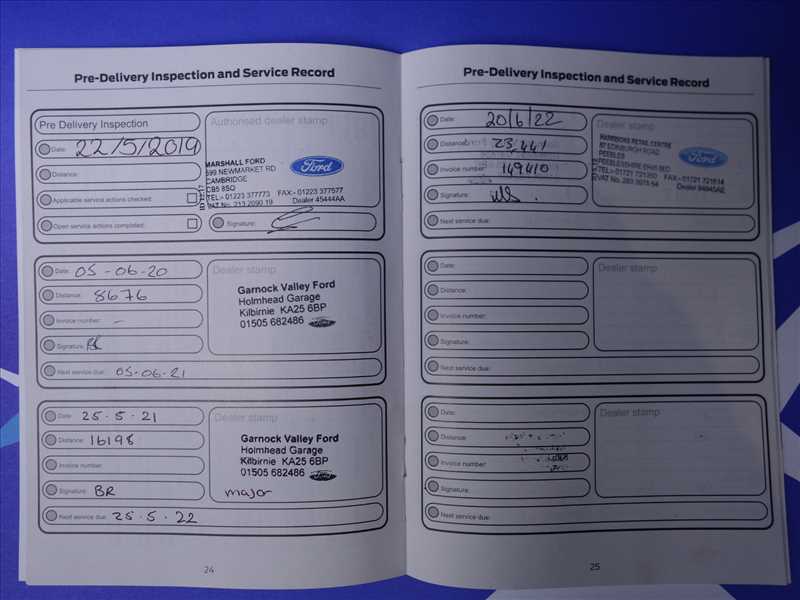 Pre-Delivery Inspection and Service Record
Pre Delivery Inspection
Authorised dealer stamp
Date: 22/5/2019
MARSHALL FORD
699 NEWMARKET RD
CAMBRIDGE
CB5 8SQ
TEL:- 01223 377773 FAX:- 01223 377577
VAT No. 213 2090 19 Dealer 45444AA
Ford
Distance:
Applicable service actions checked:
Open service actions completed:
Signature:
Date: 05-06-20
Dealer stamp
Distance: 8676
Garnock Valley Ford
Holmhead Garage
Kilbirnie KA25 6BP
01505 682486 Ford
Invoice number: -
Signature:
Next service due: 05-06-21
Date: 25.5.21
Dealer stamp
Distance: 16198
Garnock Valley Ford
Holmhead Garage
Kilbirnie KA25 6BP
01505 682486 Ford
Invoice number:
Signature: BR
major
Next service due: 25.5.22
24
Pre-Delivery Inspection and Service Record
Date: 20/6/22
Dealer stamp
Distance: 23,441
RETAIL CENTRE
EDINBURGH ROAD
PEEBLES
PEEBLESSHIRE
TEL:- 01721 FAX:- 01721
VAT No. Dealer
Ford
Invoice number: 149410
Signature:
Next service due:
Date:
Dealer stamp
Distance:
Invoice number:
Signature:
Next service due:
Date:
Dealer stamp
Distance:
Invoice number:
Signature:
Next service due:
25